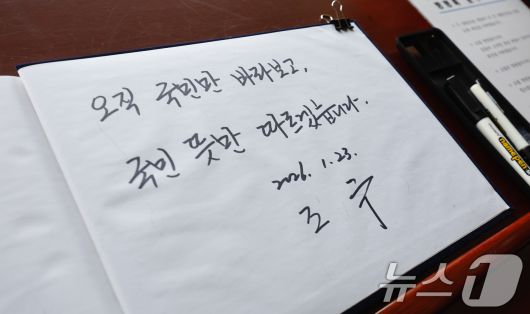 오직 국민만 바라보고,
국민 뜻만 따르겠습니다.
2026. 1. 23.
뉴스1